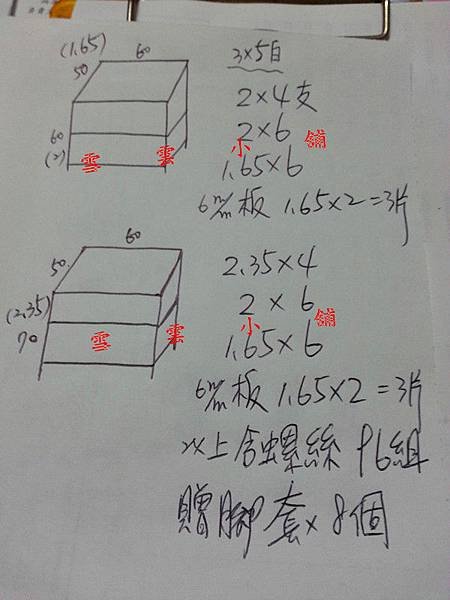 (1.65) 60
50
60
(2)
3×5白
2×4支
2×6
1.65×6
6m/m板 1.65×2=3片
雪 雲 小 舖
60
50
(2.35)
70
2.35×4
2×6
1.65×6
6m/m板 1.65×2=3片
雪 雲 小 舖
以上含螺絲 96組
贈腳套×8個